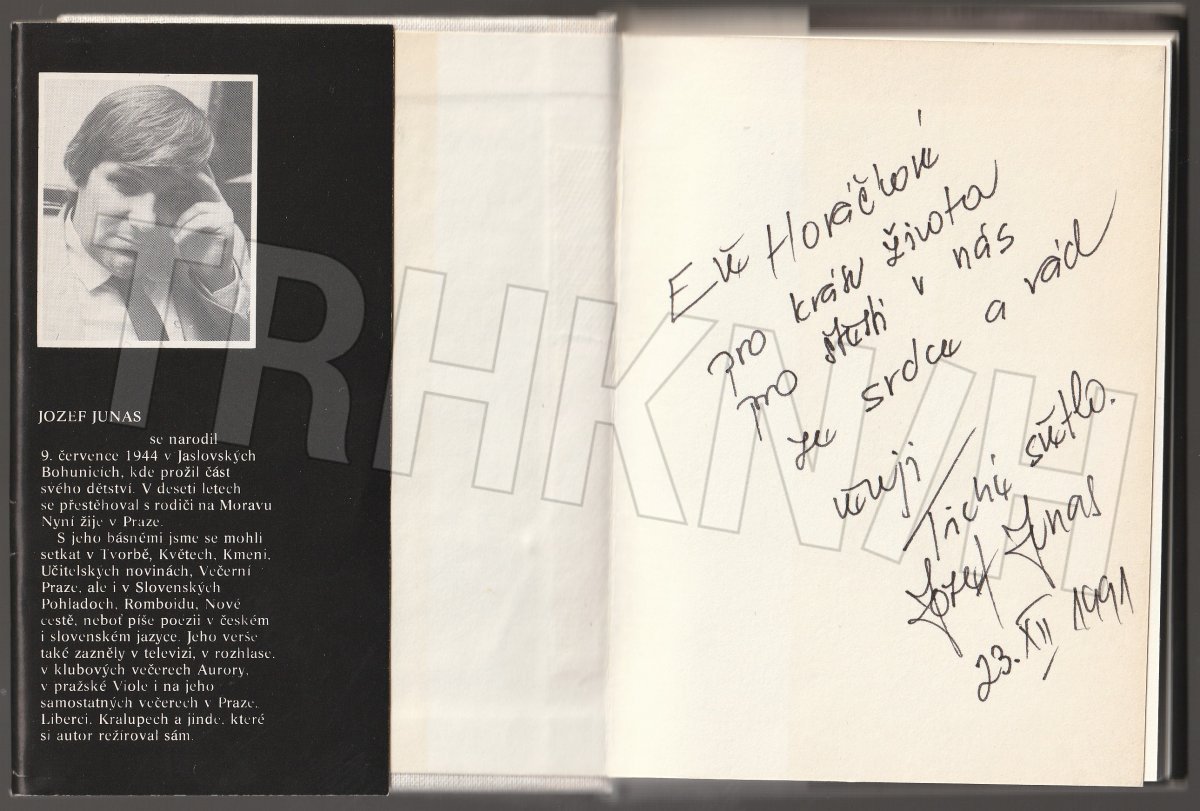 JOZEF JUNAS
se narodil
9. července 1944 v Jaslovských
Bohunicích, kde prožil část
svého dětství. V deseti letech
se přestěhoval s rodiči na Moravu
Nyní žije v Praze.
S jeho básněmi jsme se mohli
setkat v Tvorbě, Květech, Kmeni,
Učitelských novinách, Večerní
Praze, ale i v Slovenských
Pohladoch, Romboidu, Nové
cestě, neboť píše poezii v českém
i slovenském jazyce. Jeho verše
také zazněly v televizi, v rozhlase,
v klubových večerech Aurory,
v pražské Viole i na jeho
samostatných večerech v Praze,
Liberci, Kralupech a jinde, které
si autor režíroval sám.
Evě Horáčkové
pro krásu života
pro štěstí v nás
ze srdce a rád
věnuji Tiché světlo.
Jozef Junas
23. XII 1991
TRHKNIH